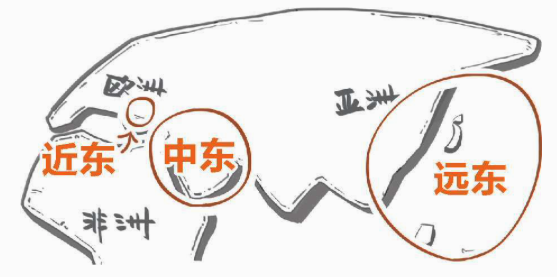 欧洲
亚洲
近东
中东
远东
非洲